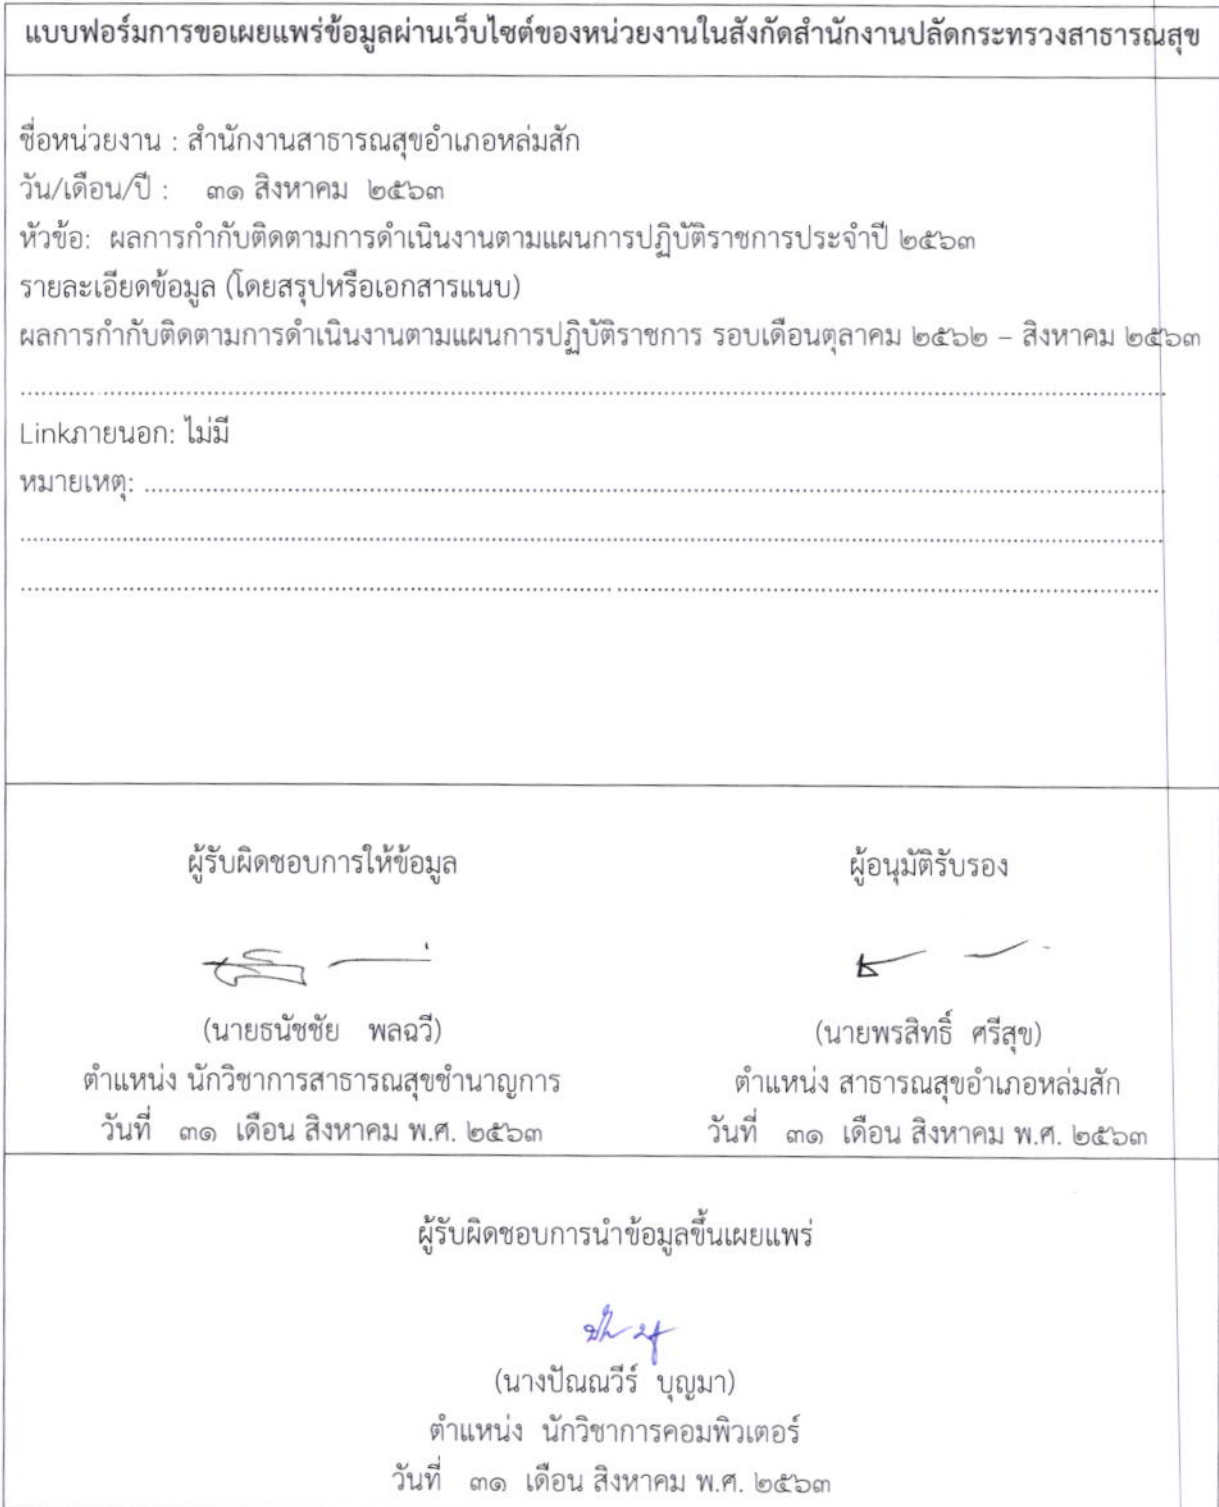 แบบฟอร์มการขอเผยแพร่ข้อมูลผ่านเว็บไซต์ของหน่วยงานในสังกัดสำนักงานปลัดกระทรวงสาธารณสุข
ชื่อหน่วยงาน : สำนักงานสาธารณสุขอำเภอหล่มสัก
วัน/เดือน/ปี : ๓๑ สิงหาคม ๒๕๖๓
หัวข้อ: ผลการกำกับติดตามการดำเนินงานตามแผนการปฏิบัติราชการประจำปี ๒๕๖๓
รายละเอียดข้อมูล (โดยสรุปหรือเอกสารแนบ)
ผลการกำกับติดตามการดำเนินงานตามแผนการปฏิบัติราชการ รอบเดือนตุลาคม ๒๕๖๒ – สิงหาคม ๒๕๖๓
Linkภายนอก: ไม่มี
หมายเหตุ:
ผู้รับผิดชอบการให้ข้อมูล
(นายธนัชชัย พลฉวี)
ตำแหน่ง นักวิชาการสาธารณสุขชำนาญการ
วันที่ ๓๑ เดือน สิงหาคม พ.ศ. ๒๕๖๓
ผู้อนุมัติรับรอง
(นายพรสิทธิ์ ศรีสุข)
ตำแหน่ง สาธารณสุขอำเภอหล่มสัก
วันที่ ๓๑ เดือน สิงหาคม พ.ศ. ๒๕๖๓
ผู้รับผิดชอบการนำข้อมูลขึ้นเผยแพร่
(นางปัณณวีร์ บุญมา)
ตำแหน่ง นักวิชาการคอมพิวเตอร์
วันที่ ๓๑ เดือน สิงหาคม พ.ศ. ๒๕๖๓